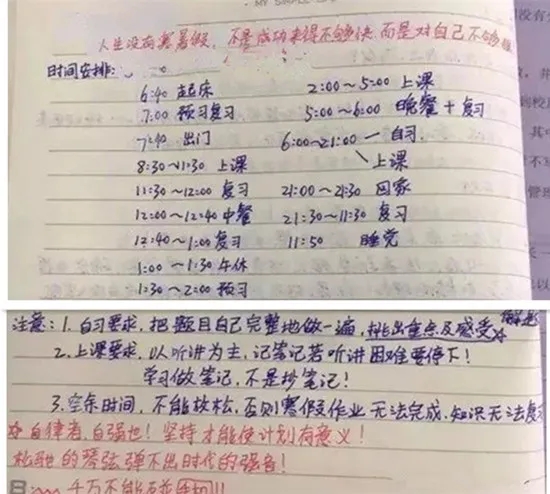 MY SIMPLE
人生没有寒暑假,不是成功来得不够快,而是对自己不够狠
时间安排:
6:40 起床
7:00 预习复习
7:40 出门
8:30~11:30 上课
11:30~12:00 复习
12:00~12:40 中餐
12:40~1:00 复习
1:00~1:30 午休
1:30~2:00 预习
2:00~5:00 上课
5:00~6:00 晚餐+复习
6:00~21:00 自习
上课
21:00~21:30 回家
21:30~11:30 复习
11:50 睡觉
注意:1.自习要求,把题目自己完整地做一遍,挑出重点及感受
2.上课要求,以听讲为主,记笔记若听讲困难要停下!
学习做笔记,不是抄笔记!
3.空余时间,不能放松,否则寒假作业无法完成,知识无法复
☆自律者,自强也!坚持才能使计划有意义!
松驰的琴弦弹不出时代的强音!
千万不能